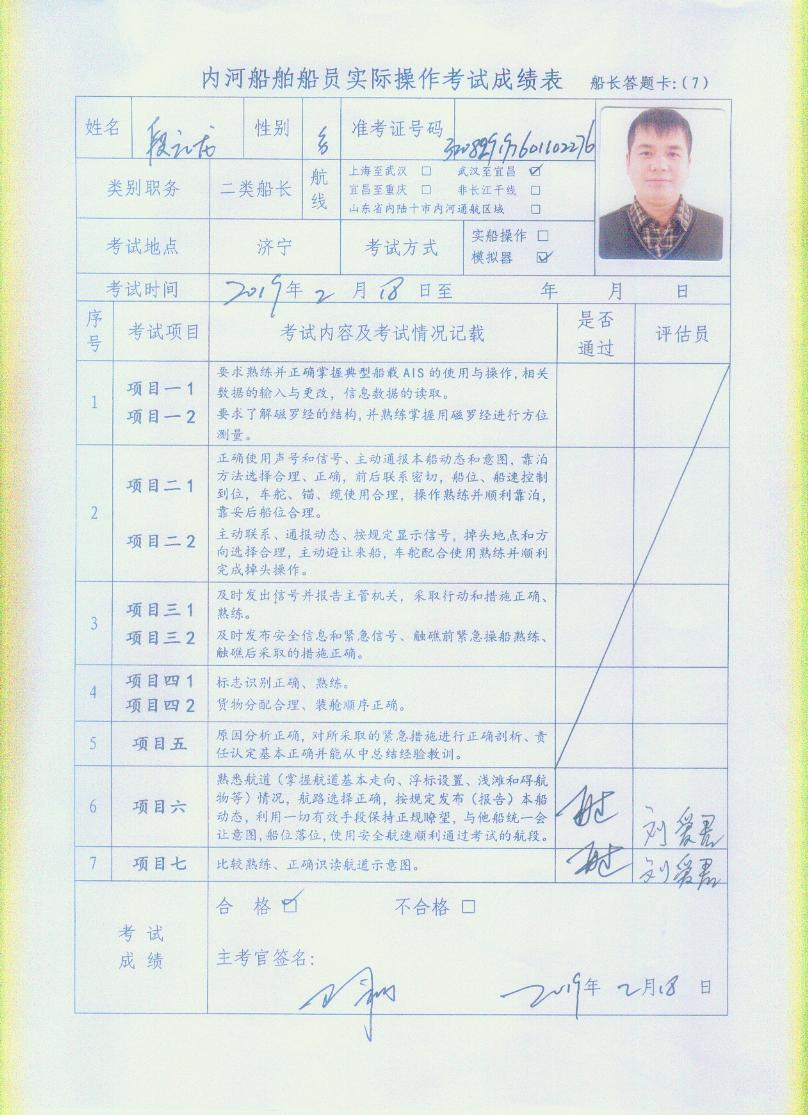 内河船舶船员实际操作考试成绩表 船长答题卡:(7)
姓名 性别 准考证号码
类别职务 二类船长 航线 上海至武汉 □ 武汉至宜昌 ☑
宜昌至重庆 □ 非长江干线 □
山东省内陆十市内河通航区域 □
考试地点 济宁 考试方式 实船操作 □
模拟器 ☑
考试时间 2019年 2 月 18 日至 年 月 日
序号 考试项目 考试内容及考试情况记载 是否通过 评估员
1 项目一1 要求熟练并正确掌握典型船载AIS的使用与操作,相关
数据的输入与更改,信息数据的读取。
项目一2 要求了解磁罗经的结构,并熟练掌握用磁罗经进行方位
测量。
2 项目二1 正确使用声号和信号、主动通报本船动态和意图,靠泊
方法选择合理、正确,前后联系密切,船位、船速控制
到位,车舵、锚、缆使用合理,操作熟练并顺利靠泊,
靠妥后船位合理。
项目二2 主动联系、通报动态、按规定显示信号,掉头地点和方
向选择合理,主动避让来船,车舵配合使用熟练并顺利
完成掉头操作。
3 项目三1 及时发出信号并报告主管机关,采取行动和措施正确、
熟练。
项目三2 及时发布安全信息和紧急信号、触礁前紧急操船熟练、
触礁后采取的措施正确。
4 项目四1 标志识别正确、熟练。
项目四2 货物分配合理、装舱顺序正确。
5 项目五 原因分析正确,对所采取的紧急措施进行正确剖析、责
任认定基本正确并能从中总结经验教训。
6 项目六 熟悉航道(掌握航道基本走向、浮标设置、浅滩和碍航
物等)情况,航路选择正确,按规定发布(报告)本船
动态,利用一切有效手段保持正规瞭望,与他船统一会
让意图,船位落位,使用安全航速顺利通过考试的航段。
7 项目七 比较熟练、正确识读航道示意图。
考试成绩 合 格 ☑ 不合格 □
主考官签名:
2019年 2月18 日